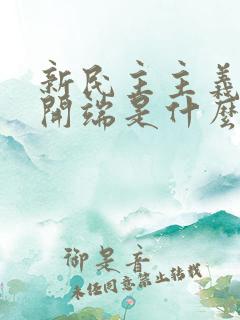 新民主主義
開端是什麼
御是音
未任同意禁止轉載